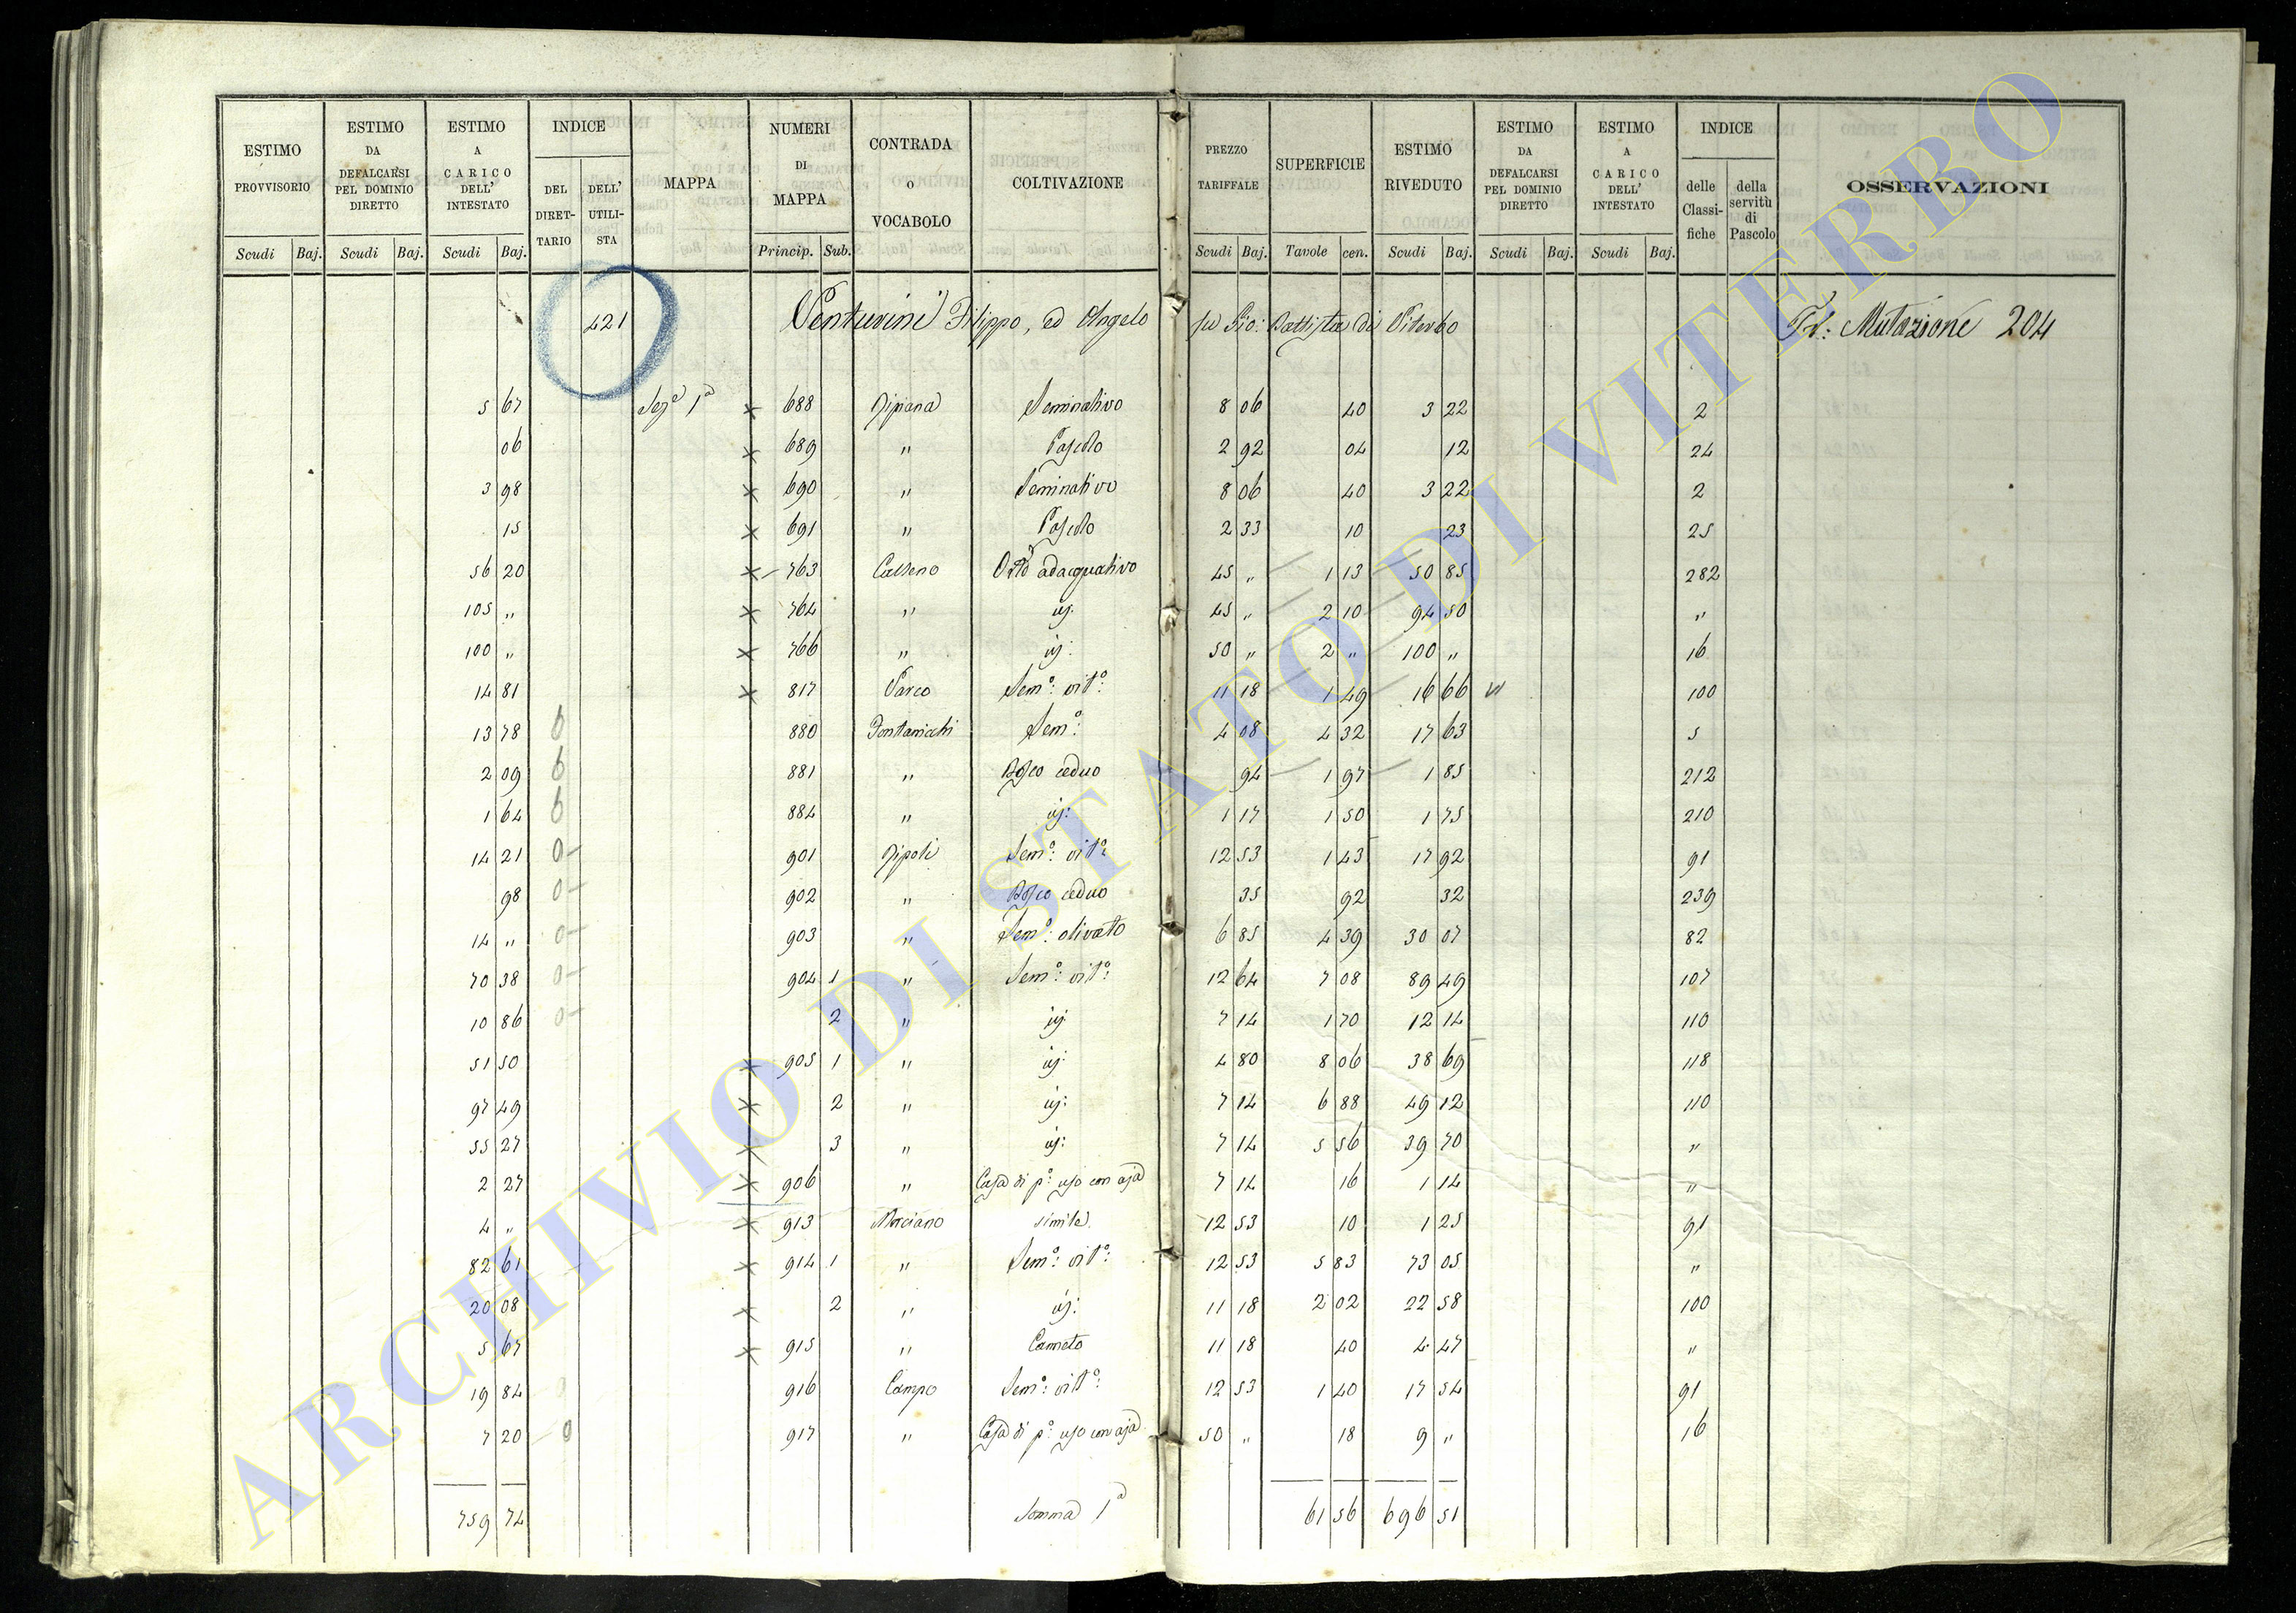 ESTIMO PROVVISORIO
ESTIMO DA DEFALCARSI PEL DOMINIO DIRETTO
ESTIMO A CARICO DELL' INTESTATO
INDICE
DEL DIRETTARIO
DELL' UTILISTA
MAPPA
NUMERI DI MAPPA
CONTRADA O VOCABOLO
COLTIVAZIONE
PREZZO TARIFFALE
SUPERFICIE
ESTIMO RIVEDUTO
ESTIMO DA DEFALCARSI PEL DOMINIO DIRETTO
ESTIMO A CARICO DELL' INTESTATO
INDICE
delle Classifiche
della servitù di Pascolo
OSSERVAZIONI
Scudi Baj. Scudi Baj. Scudi Baj. Princip. Sub. Scudi Baj. Tavole cen. Scudi Baj. Scudi Baj. Scudi Baj.
421 Venturini Filippo, ed Angelo fu Gio: Battista di Viterbo Mutazione 204
5 67 Sezᵉ 1ᵃ × 688 Seminativo 8 06 40 3 22 2
06 × 689 " Pascolo 2 92 04 12 24
3 98 × 690 " Seminativo 8 06 40 3 22 2
15 × 691 " Pascolo 2 33 10 23 25
56 20 × 763 Orto adacquativo 45 " 1 13 50 85 282
105 " × 764 " 45 " 2 10 94 50 "
100 " × 766 " 50 " 2 " 100 " 16
14 81 × 817 Parco Semº: vitº: 11 18 1 49 16 66 100
13 78 880 Semº: 4 08 4 32 17 63 5
2 09 881 " Bosco ceduo 94 1 97 1 85 212
1 64 884 " 1 17 1 50 1 75 210
14 21 0- 901 Ripoli Semº: vitº: 12 53 1 43 17 92 91
98 0- 902 " Bosco ceduo 35 92 32 239
14 " 0- 903 " Semº: olivato 6 85 4 39 30 07 82
70 38 0- 904 1 " Semº: vitº: 12 64 7 08 89 49 107
10 86 0- 2 " 7 14 1 70 12 14 110
51 50 × 905 1 " 4 80 8 06 38 69 118
97 49 × 2 " 7 14 6 88 49 12 110
55 27 × 3 " 7 14 5 56 39 70 "
2 27 × 906 " Casa di pº: uso con aja 7 14 16 1 14 "
4 " × 913 Marciano simile 12 53 10 1 25 91
82 61 × 914 1 " Semº: vitº: 12 53 5 83 73 05 "
20 08 × 2 " 11 18 2 02 22 58 100
5 67 × 915 " Canneto 11 18 40 4 47 "
19 84 916 Campo Semº: vitº: 12 53 1 40 17 54 91
7 20 0 917 " Casa di pº: uso con aja 50 " 18 9 " 16
759 74 Somma 1ᵃ 61 56 696 51
ARCHIVIO DI STATO DI VITERBO